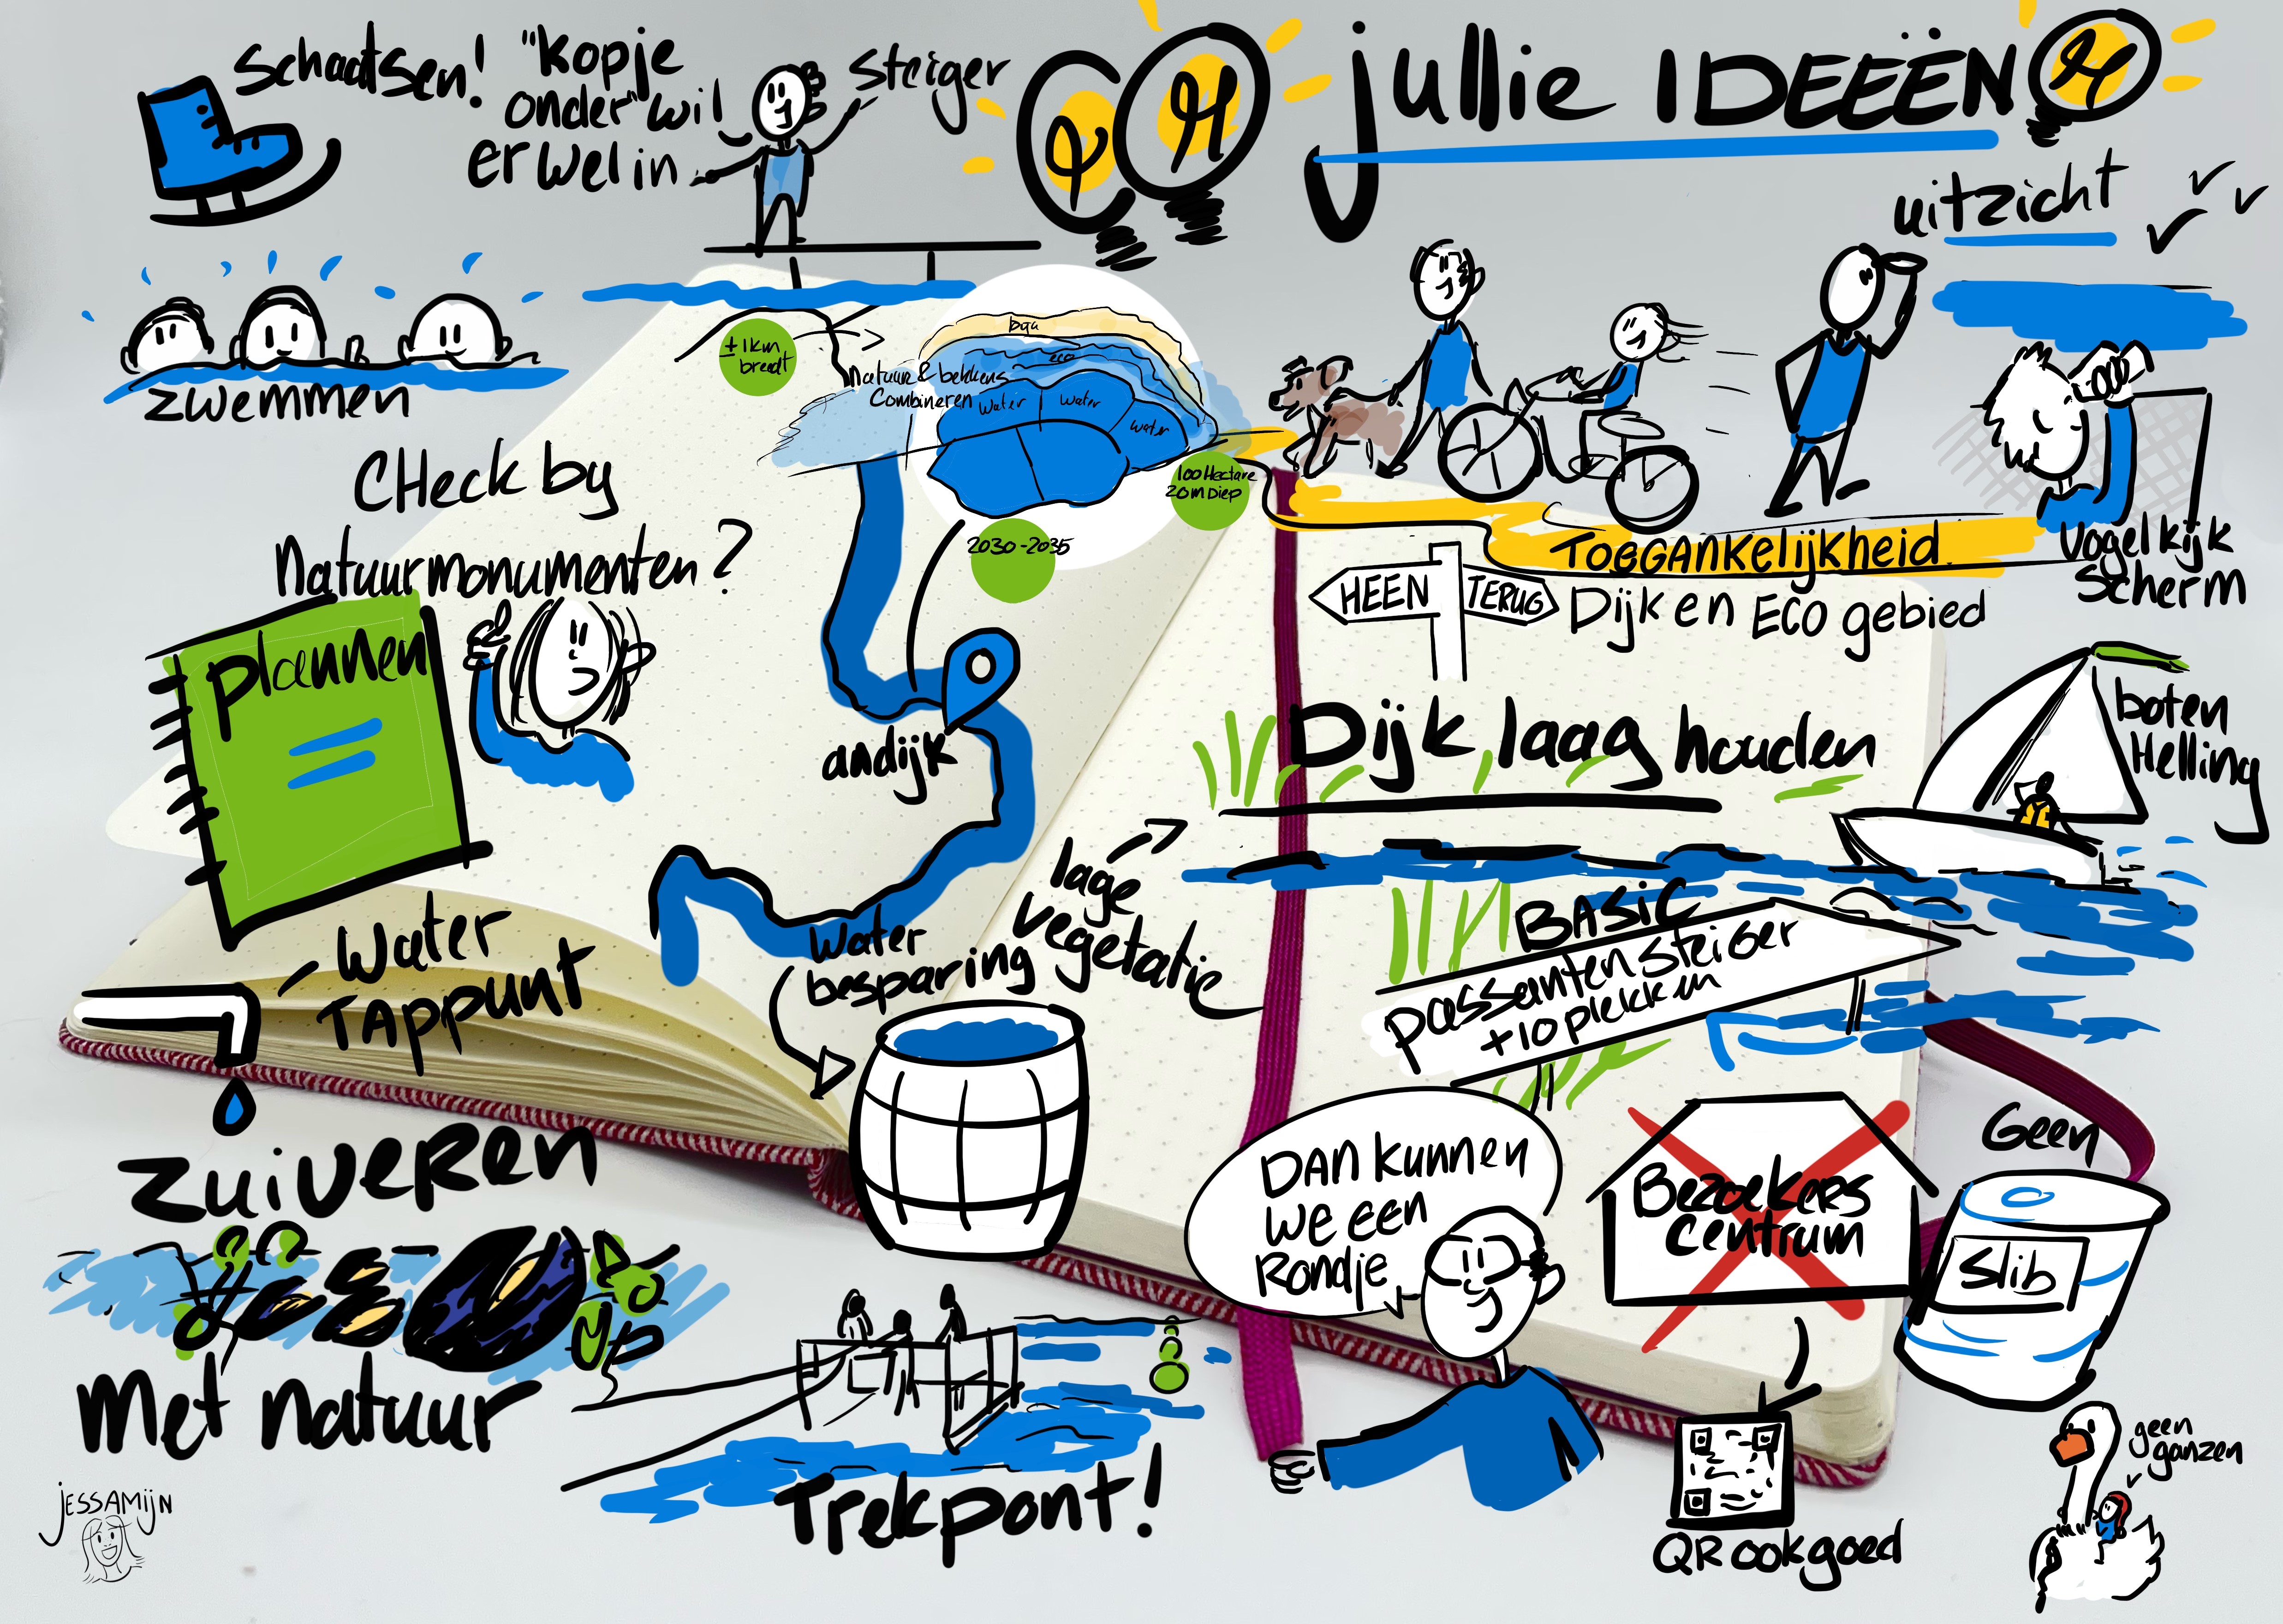 jullie IDEEËN
Schaatsen!
"kopje
onder" wil
er wel in
Steiger
uitzicht
zwemmen
± 1km
breedt
bga
eco
natuur & bekkens
Combineren
water
water
water
100 Hectare
20 m Diep
2030-2035
CHeck by
Natuurmonumenten?
plannen
andijk
TOEGANKELIJKheid
HEEN
TERUG
Dijk en ECO gebied
Vogelkijk
scherm
Dijk laag houden
boten
Helling
lage
vegetatie
Water
TAPpunt
Water
besparing
BASIC
passanten steiger
+10 plekken
zuiveren
Met natuur
DAN kunnen
we een
Rondje
Bezoekers
centrum
Geen
Slib
Trekpont!
QR ook goed
geen
ganzen
JESSAMIJN